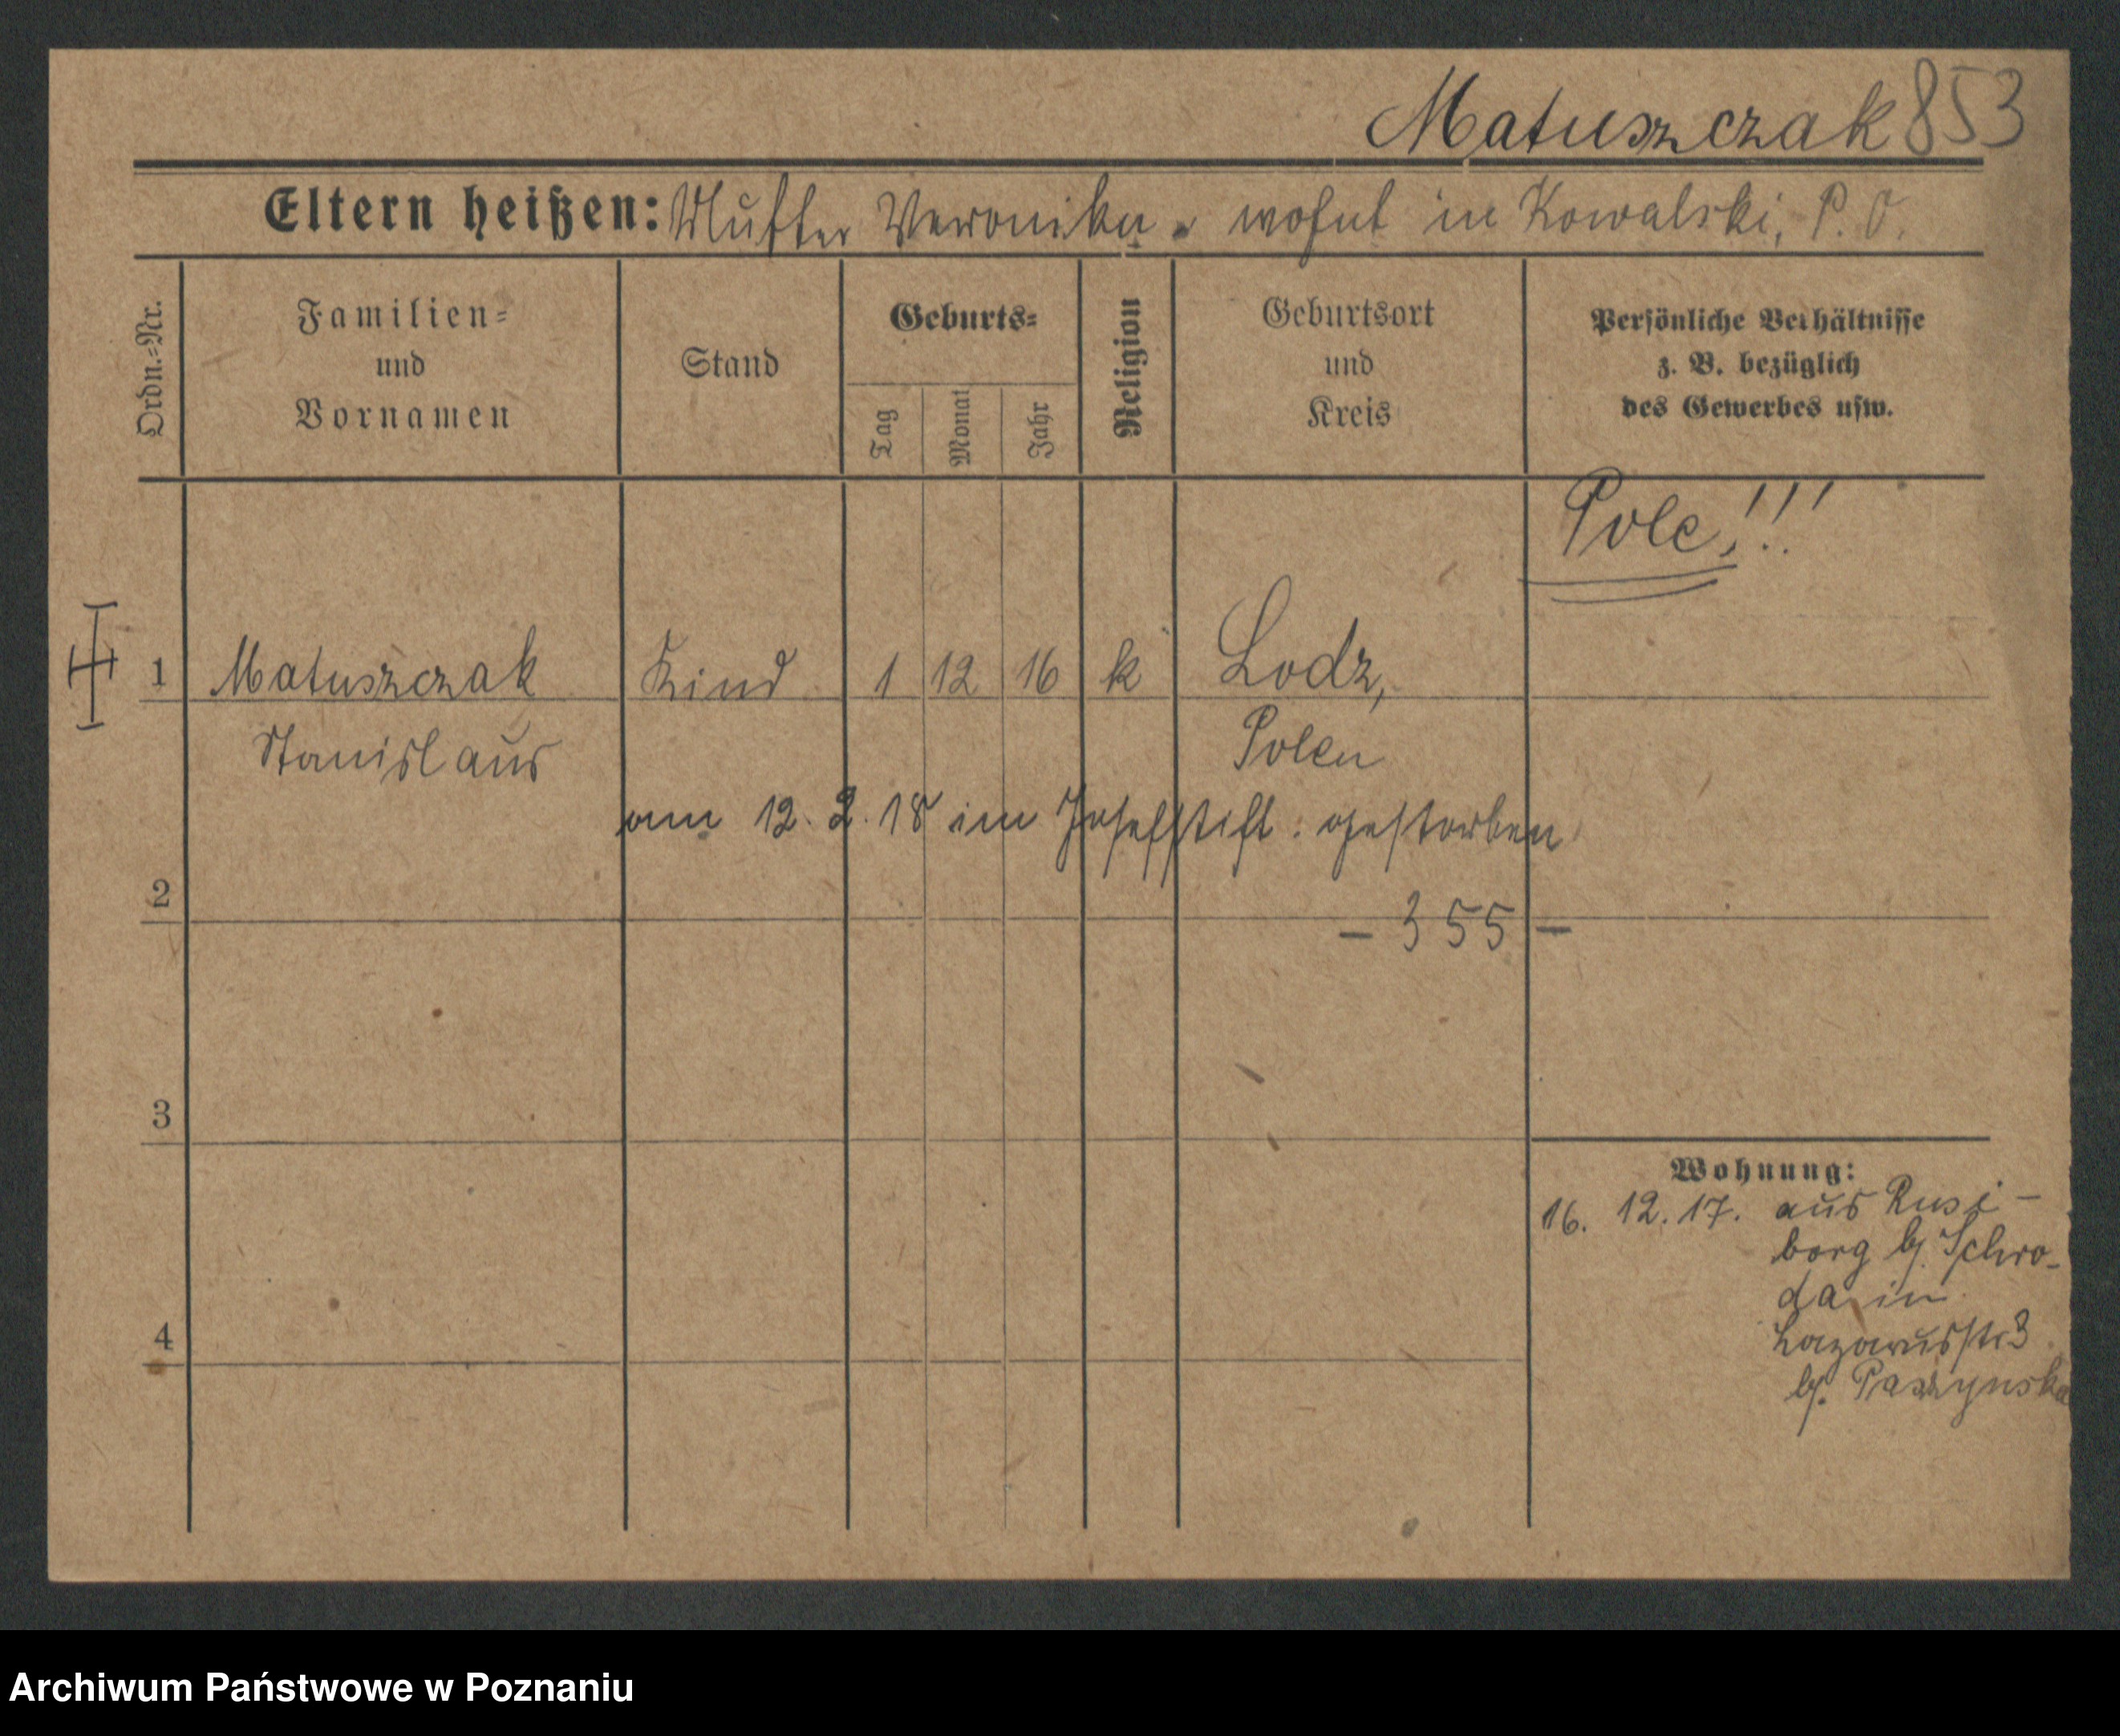 Matuszczak 853
Eltern heißen: Mutter Veronika. wohnt in Kowalski, P. O.
Ordn.=Nr.
Familien=
und
Vornamen
Stand
Geburts=
Tag
Monat
Jahr
Religion
Geburtsort
und
Kreis
Persönliche Verhältnisse
z. B. bezüglich
des Gewerbes usw.
Pole!!!
1 Matuszczak Kind 1 12 16 k Lodz,
Stanislaus Polen
am 12. 2. 18 im Josefstift. gestorben
2
- 355 -
3
Wohnung:
16. 12. 17. aus Rusi-
borg bj. Schro-
da in
4 Lazarusstr 3
bj. Paszynska
Archiwum Państwowe w Poznaniu